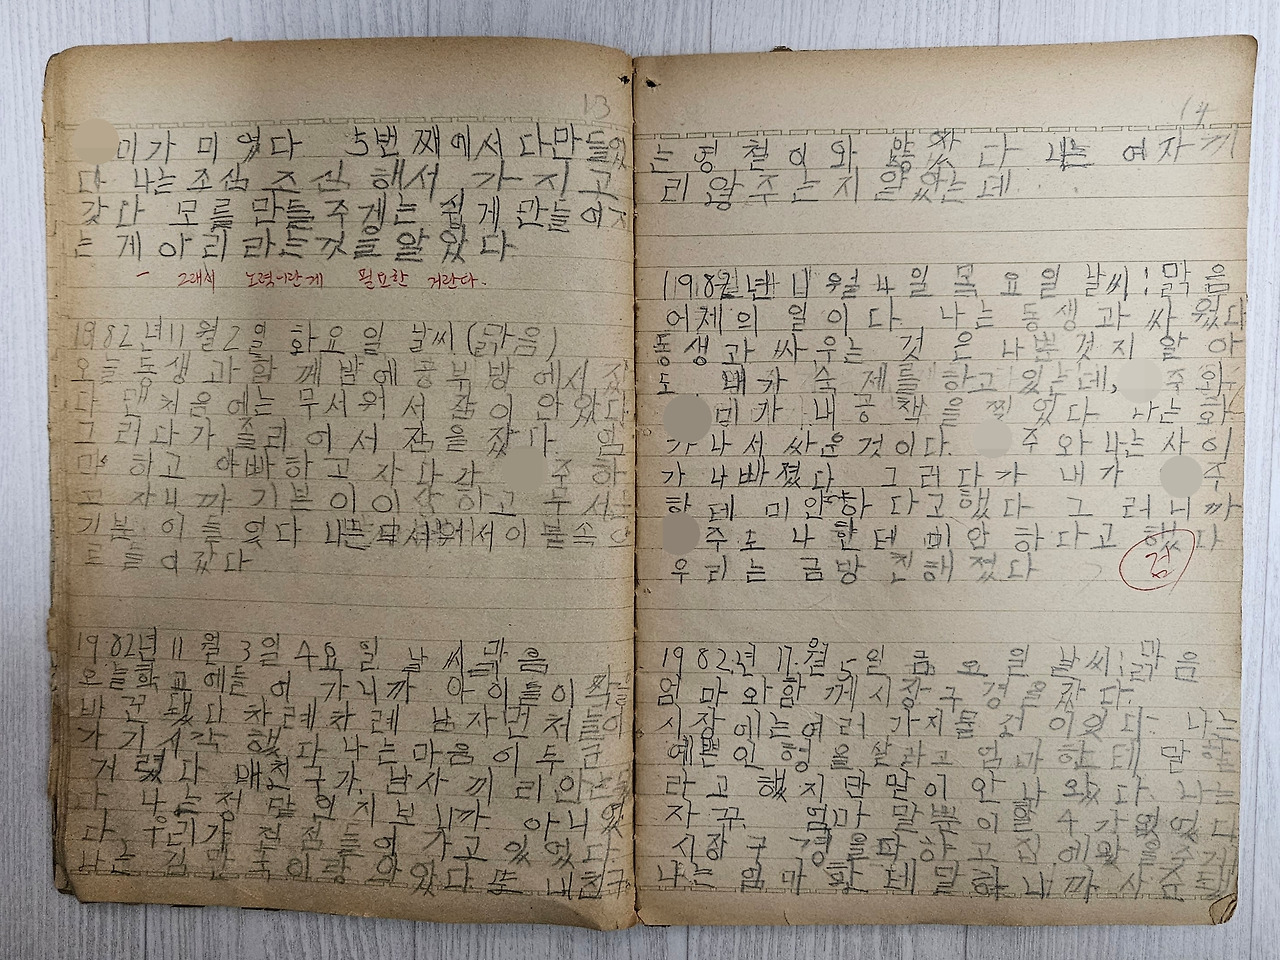 13
미가 미웠다 5번째에서 다만들었
다 나는 조심 조심 해서 가지고
갔다 모를 만들 주게는 쉽게 만들어지
는 게 아리라는것을 알았다
- 그래서 노력이란게 필요한 거란다.
1982년 11월 2일 화요일 날씨(맑음)
오늘 동생과 함께 밤에 공부방에서 잤
다 맨처음에는 무서워서 잠이 안왔다
그러다가 졸리어서 잔을 잤다. 엄
마하고 아빠하고 자다가 주하
고 자니까 기분이 이상하고 무서운
기분이 들었다 나는 무서워서 이불속으
로 들어갔다
1982년 11월 3일 수요일 날씨 맑음
오늘 학교에 들어가니까 아이들이 짝을
바꾼 됐다 차례차례 남자먼저 들어
가기시작했다 나는 마음이 두근
거렸다 내친구가 남자끼리 앉는
다 나는 정말인지 보니까 아니었
다. 우리가 점점 들어가고 있었다.
나는 김만국이랑 앉았다. 또 내친구
14
는 영철이와 앉았다 나는 여자끼
리 앉주는지 알았는데
1982년 11월 4일 목요일 날씨:맑음
어제의 일이다. 나는 동생과 싸웠다
동생과 싸우는 것은 나쁜것지 알아
도 내가 숙제를 하고 있는데, 주와
미가 내공책을 찢었다 나는 화
가나서 싸운것이다. 주와 나는 사이
가 나빠졌다 그러다가 내가 주
한테 미안하다고 했다 그러니까
주도 나한테 미안하다고 했다
우리는 금방 친해졌다
검
1982.년 11.월 5일 금요일 날씨:맑음
엄마와 함께 시장구경을 갔다.
시장에는 여러가지 물건이 있다. 나는
예쁜 인형을 살라고 엄마한테 말할
라고 했지만 말이 안나왔다. 나는
자꾸 엄마 말뿐이 할수가 없었다
시장구경을 다하고 집에 왔을 주게
나는 엄마한테 말하니까 사준